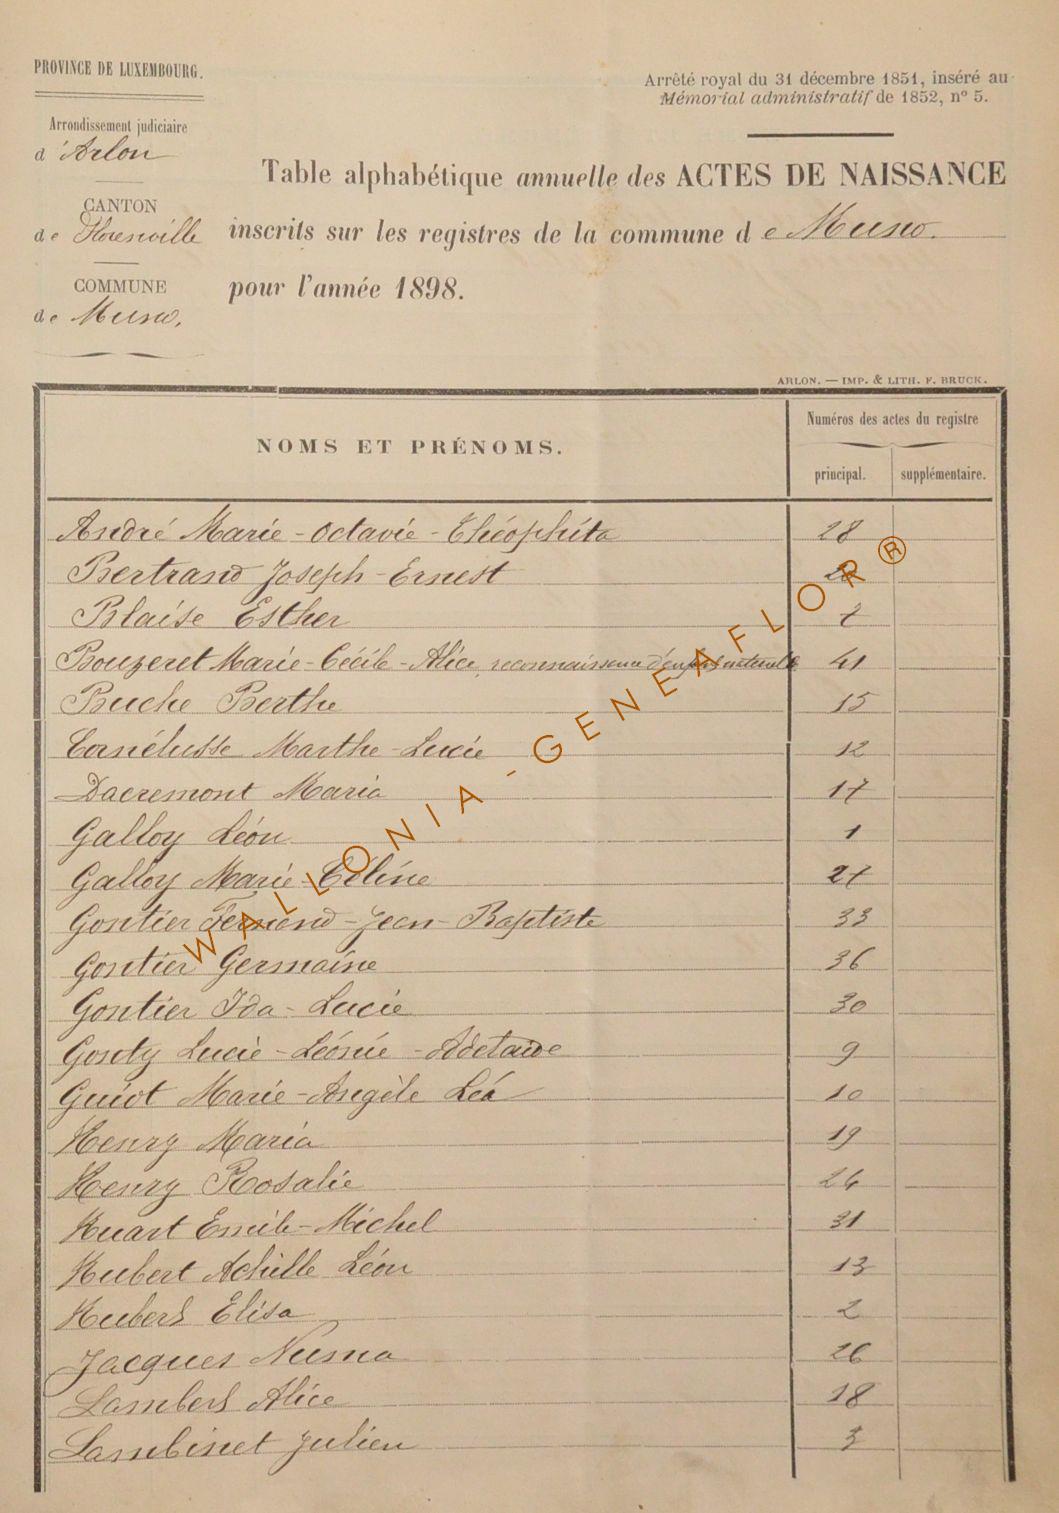 PROVINCE DE LUXEMBOURG.
Arrêté royal du 31 décembre 1851, inséré au
Mémorial administratif de 1852, nº 5.
Arrondissement judiciaire
d'Arlon
CANTON
de Florenville
COMMUNE
de Muno.
Table alphabétique annuelle des ACTES DE NAISSANCE
inscrits sur les registres de la commune de Muno.
pour l'année 1898.
ARLON. — IMP. & LITH. F. BRUCK.
NOMS ET PRÉNOMS.
Numéros des actes du registre
principal. supplémentaire.
André Marie-Octavie-Théophita 28
Bertrand Joseph-Ernest
Blaise Esther 7
Bouzeret Marie-Cécile-Alice, reconnaissance d'enfant naturelle 41
Buche Berthe 15
Canélusse Marthe-Lucie 12
Dacremont Maria 17
Galloy Léon 1
Galloy Marie-Céline 27
Gontier Fernand-Jean-Baptiste 33
Gontier Germaine 36
Gontier Ida-Lucie 30
Gonty Lucie-Léonie-Adelaide 9
Guiot Marie-Angèle Léa 10
Henry Maria 19
Henry Rosalie
Huart Emile-Michel 31
Hubert Achille Léon 13
Hubert Elisa 2
Jacques Numa 26
Lambert Alice 18
Lambinet Julien 3
WALLONIA-GENEAFLOR®